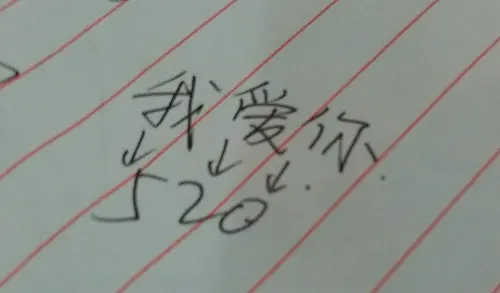 我爱你.
↓ ↓ ↓.
520